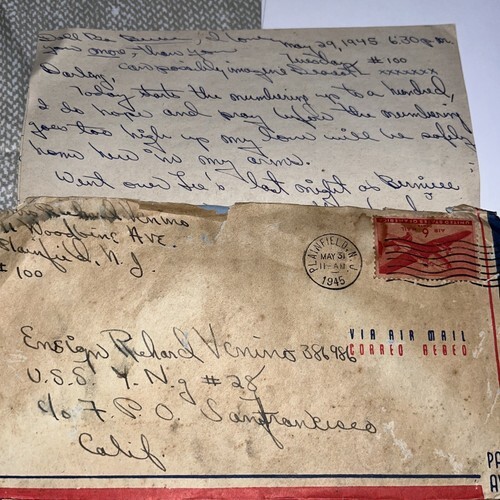 I love
you more, than you
May 29, 1945 6:30 p.m.
Tuesday #100
can possibly imagine Dearest xxxxxx
Darling,
Today starts the numbering up to a hundred,
I do hope and pray before the numbering
goes too high up my love will be safely
home here in my arms.
Went over Lee's last night as Bernice
Richard Venino
Woodbine Ave.
Plainfield, N. J.
# 100
PLAINFIELD, N.J.
MAY 31
11-AM
1945
6¢
VIA AIR MAIL
CORREO AEREO
Ensign Richard Venino 386986
U.S.S. Y. N. g # 28
c/o F. P. O. San Francisco
Calif.